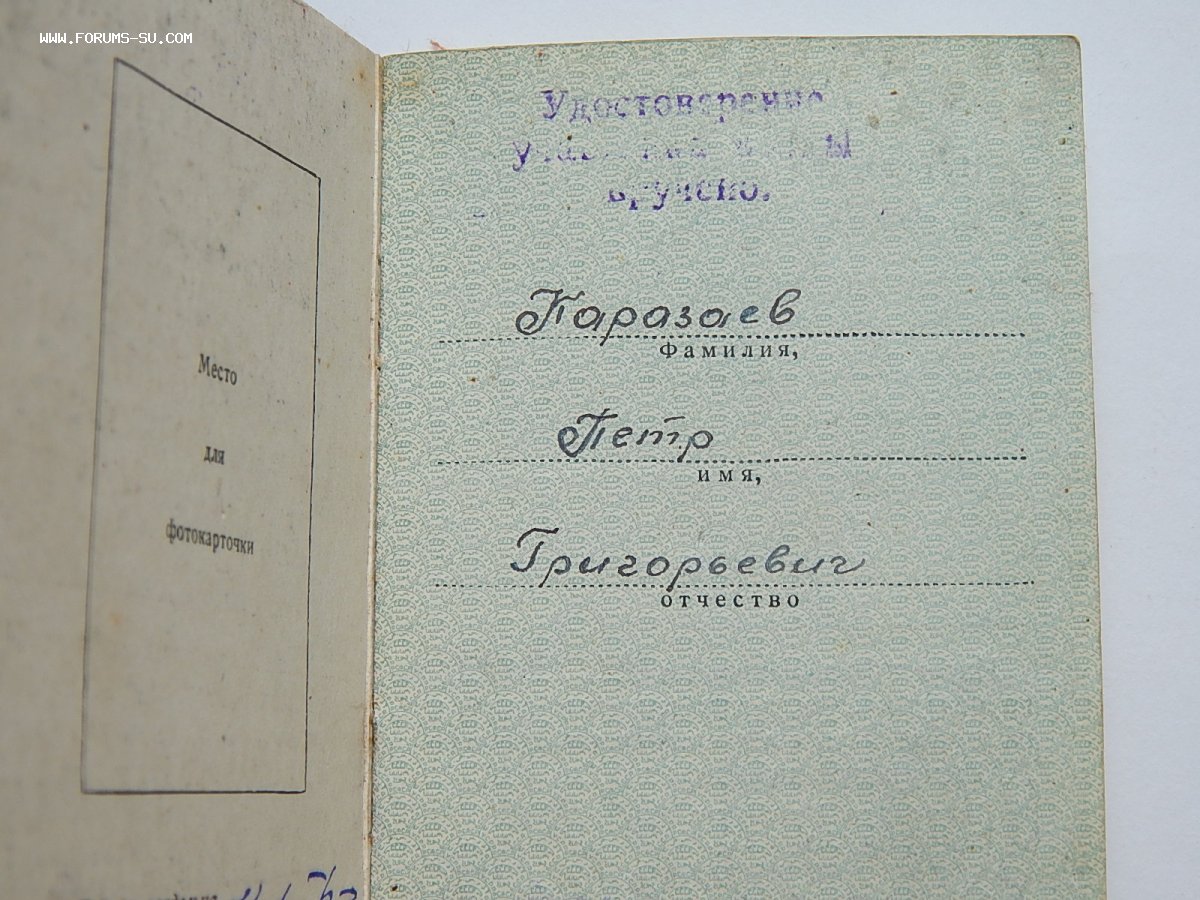 WWW.FORUMS-SU.COM
Место
для
фотокарточки
Удостоверение
участника войны
вручено.
Паразаев
Фамилия,
Петр
имя,
Григорьевич
отчество